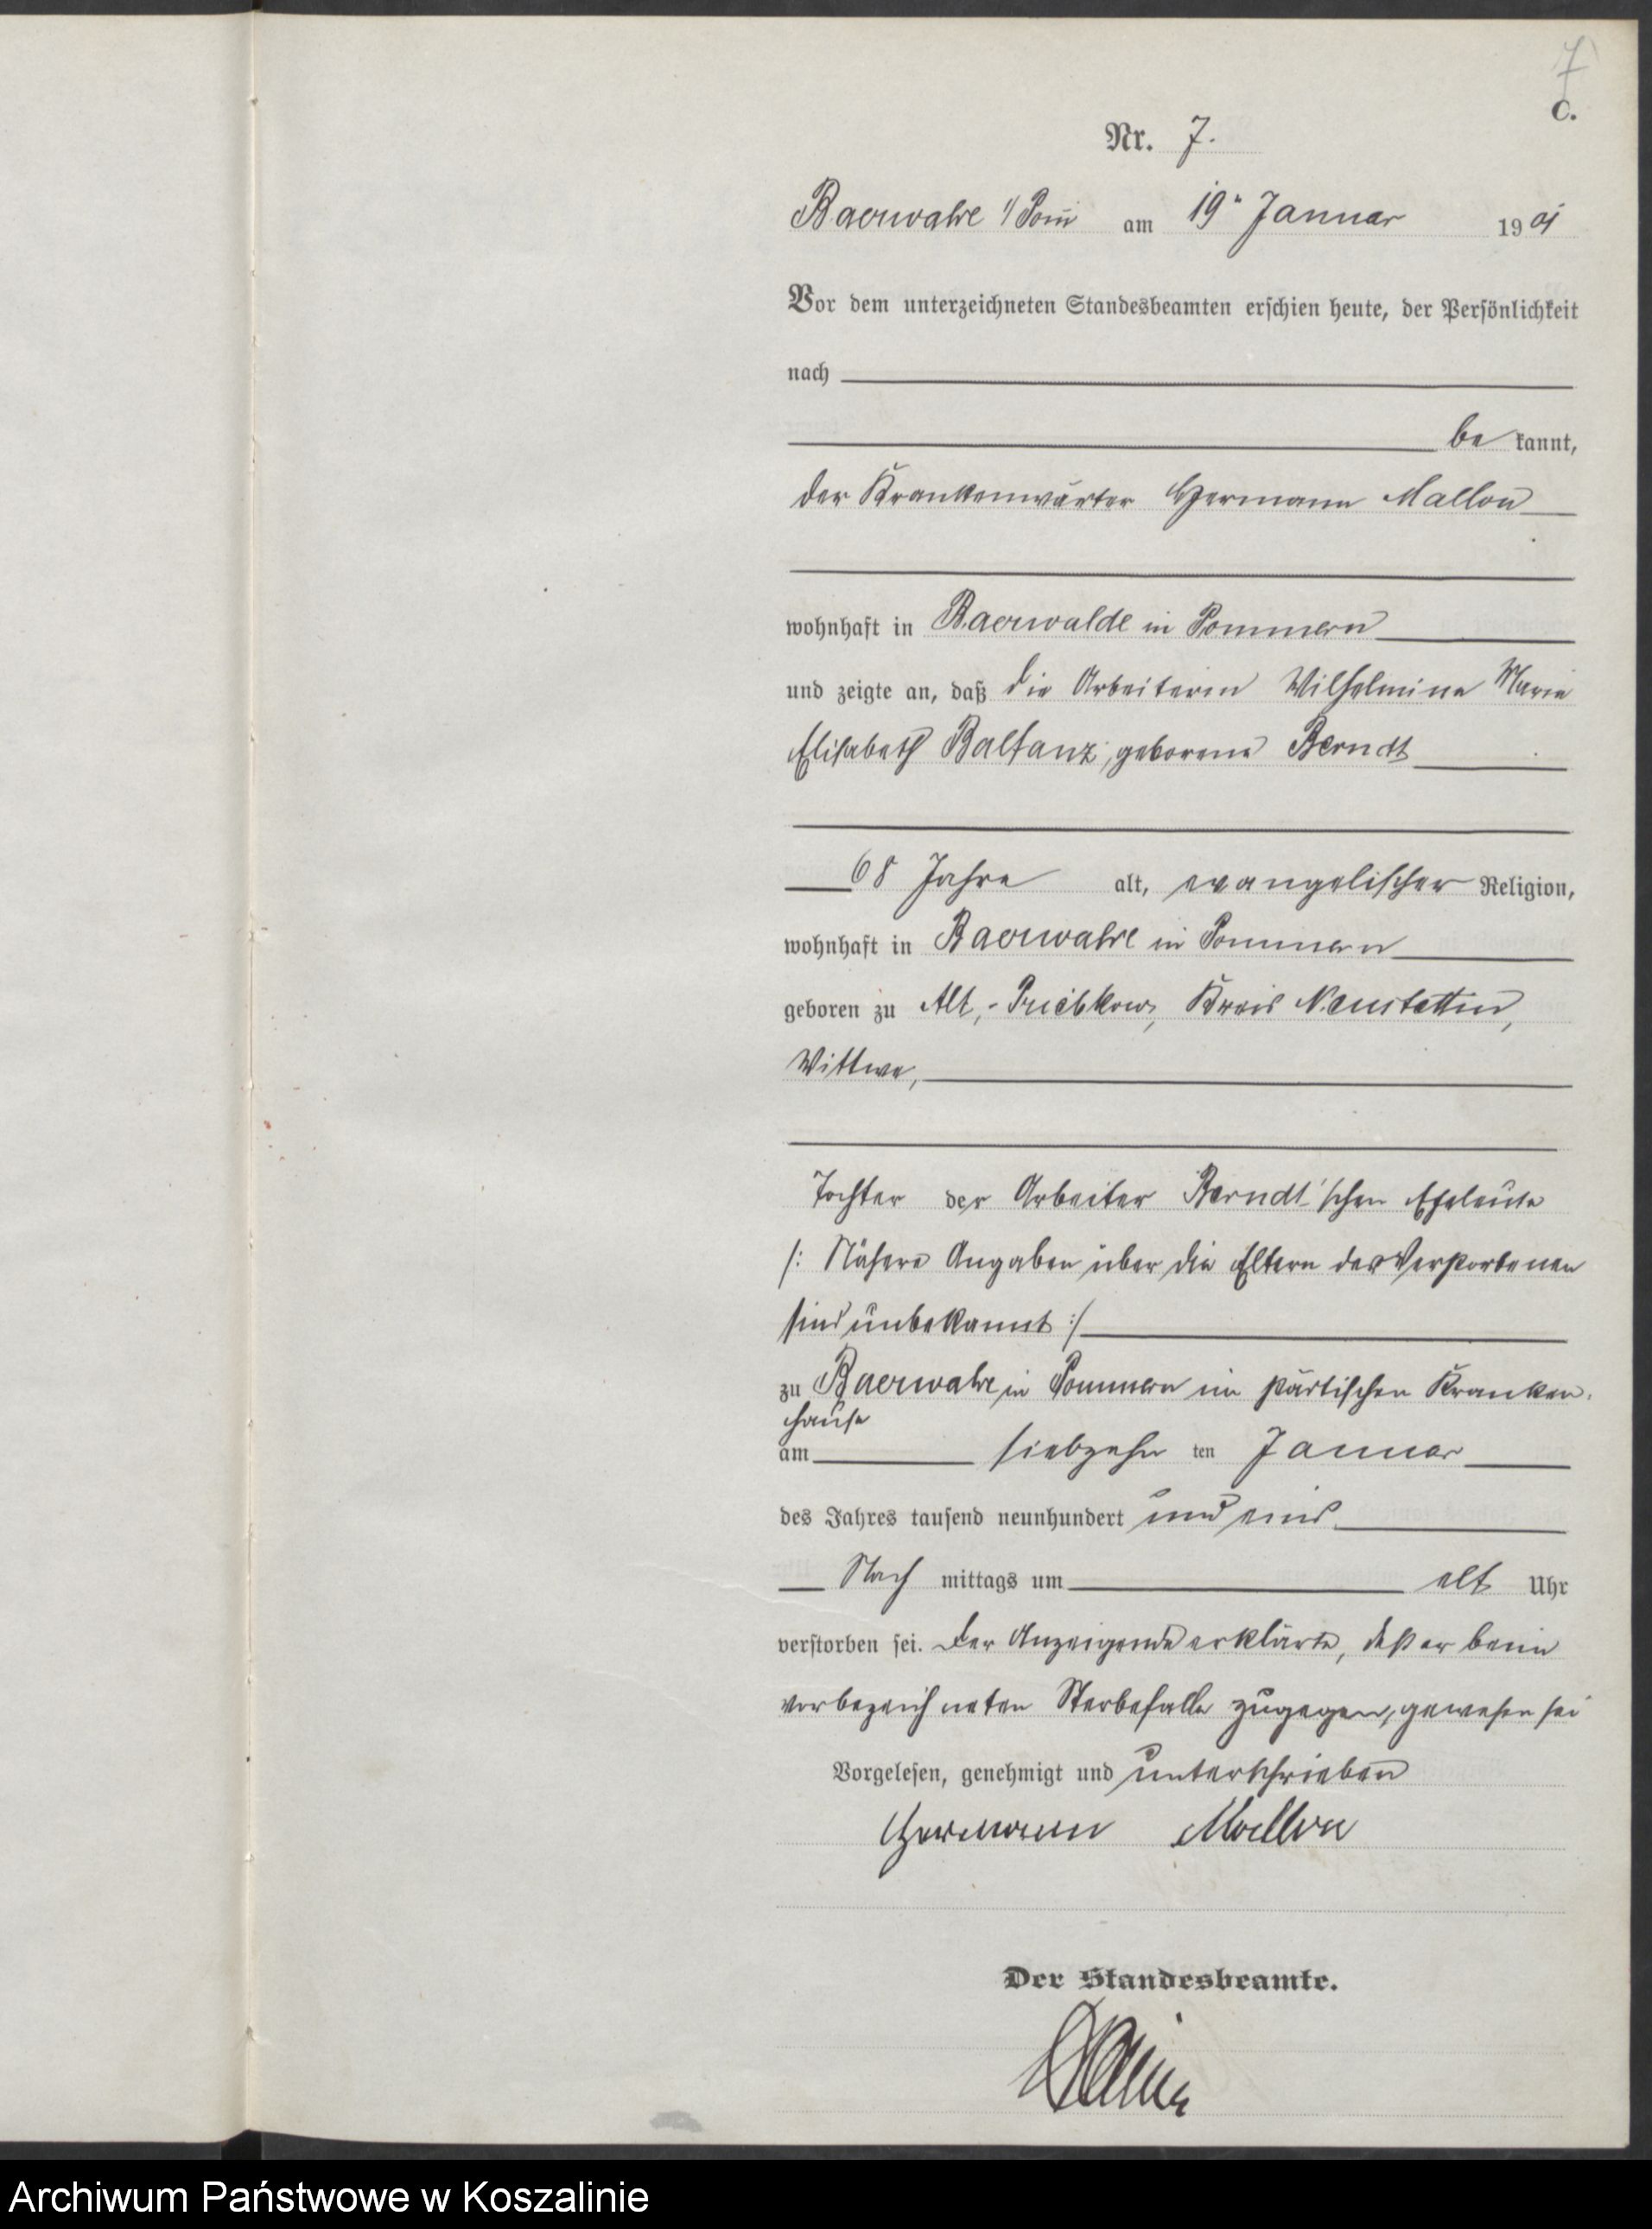 7
C.
Nr. 7.
Baerwalde i/Pom am 19ten Januar 1901
Vor dem unterzeichneten Standesbeamten erschien heute, der Persönlichkeit
nach
be kannt,
der Krankenwärter Hermann Mallon
wohnhaft in Baerwalde in Pommern
und zeigte an, daß die Arbeiterin Wilhelmine Marie
Elisabeth Balfanz, geborene Berndt
68 Jahre alt, evangelischer Religion,
wohnhaft in Baerwalde in Pommern
geboren zu Alt-Priebkow, Kreis Neustettin,
Wittwe,
Tochter der Arbeiter Berndt'schen Eheleute
/: Nähere Angaben über die Eltern der Verstorbenen
sind unbekannt :/
zu Baerwalde in Pommern im städtischen Kranken-
hause
am siebzehn ten Januar
des Jahres tausend neunhundert und eins
Nach mittags um elf Uhr
verstorben sei. Der Anzeigende erklärte, daß er beim
vorbezeichneten Sterbefalle zugegen gewesen sei
Vorgelesen, genehmigt und unterschrieben
Hermann Mallon
Der Standesbeamte.
Archiwum Państwowe w Koszalinie